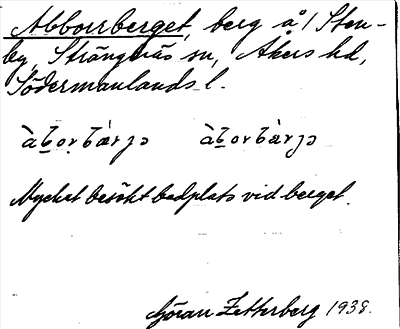 Abborrberget, berg å 1 Sten-
by, Strängnäs sn, Åkers hd,
Södermanlands l.
Mycket besökt badplats vid berget.
Göran Zetterberg 1938.